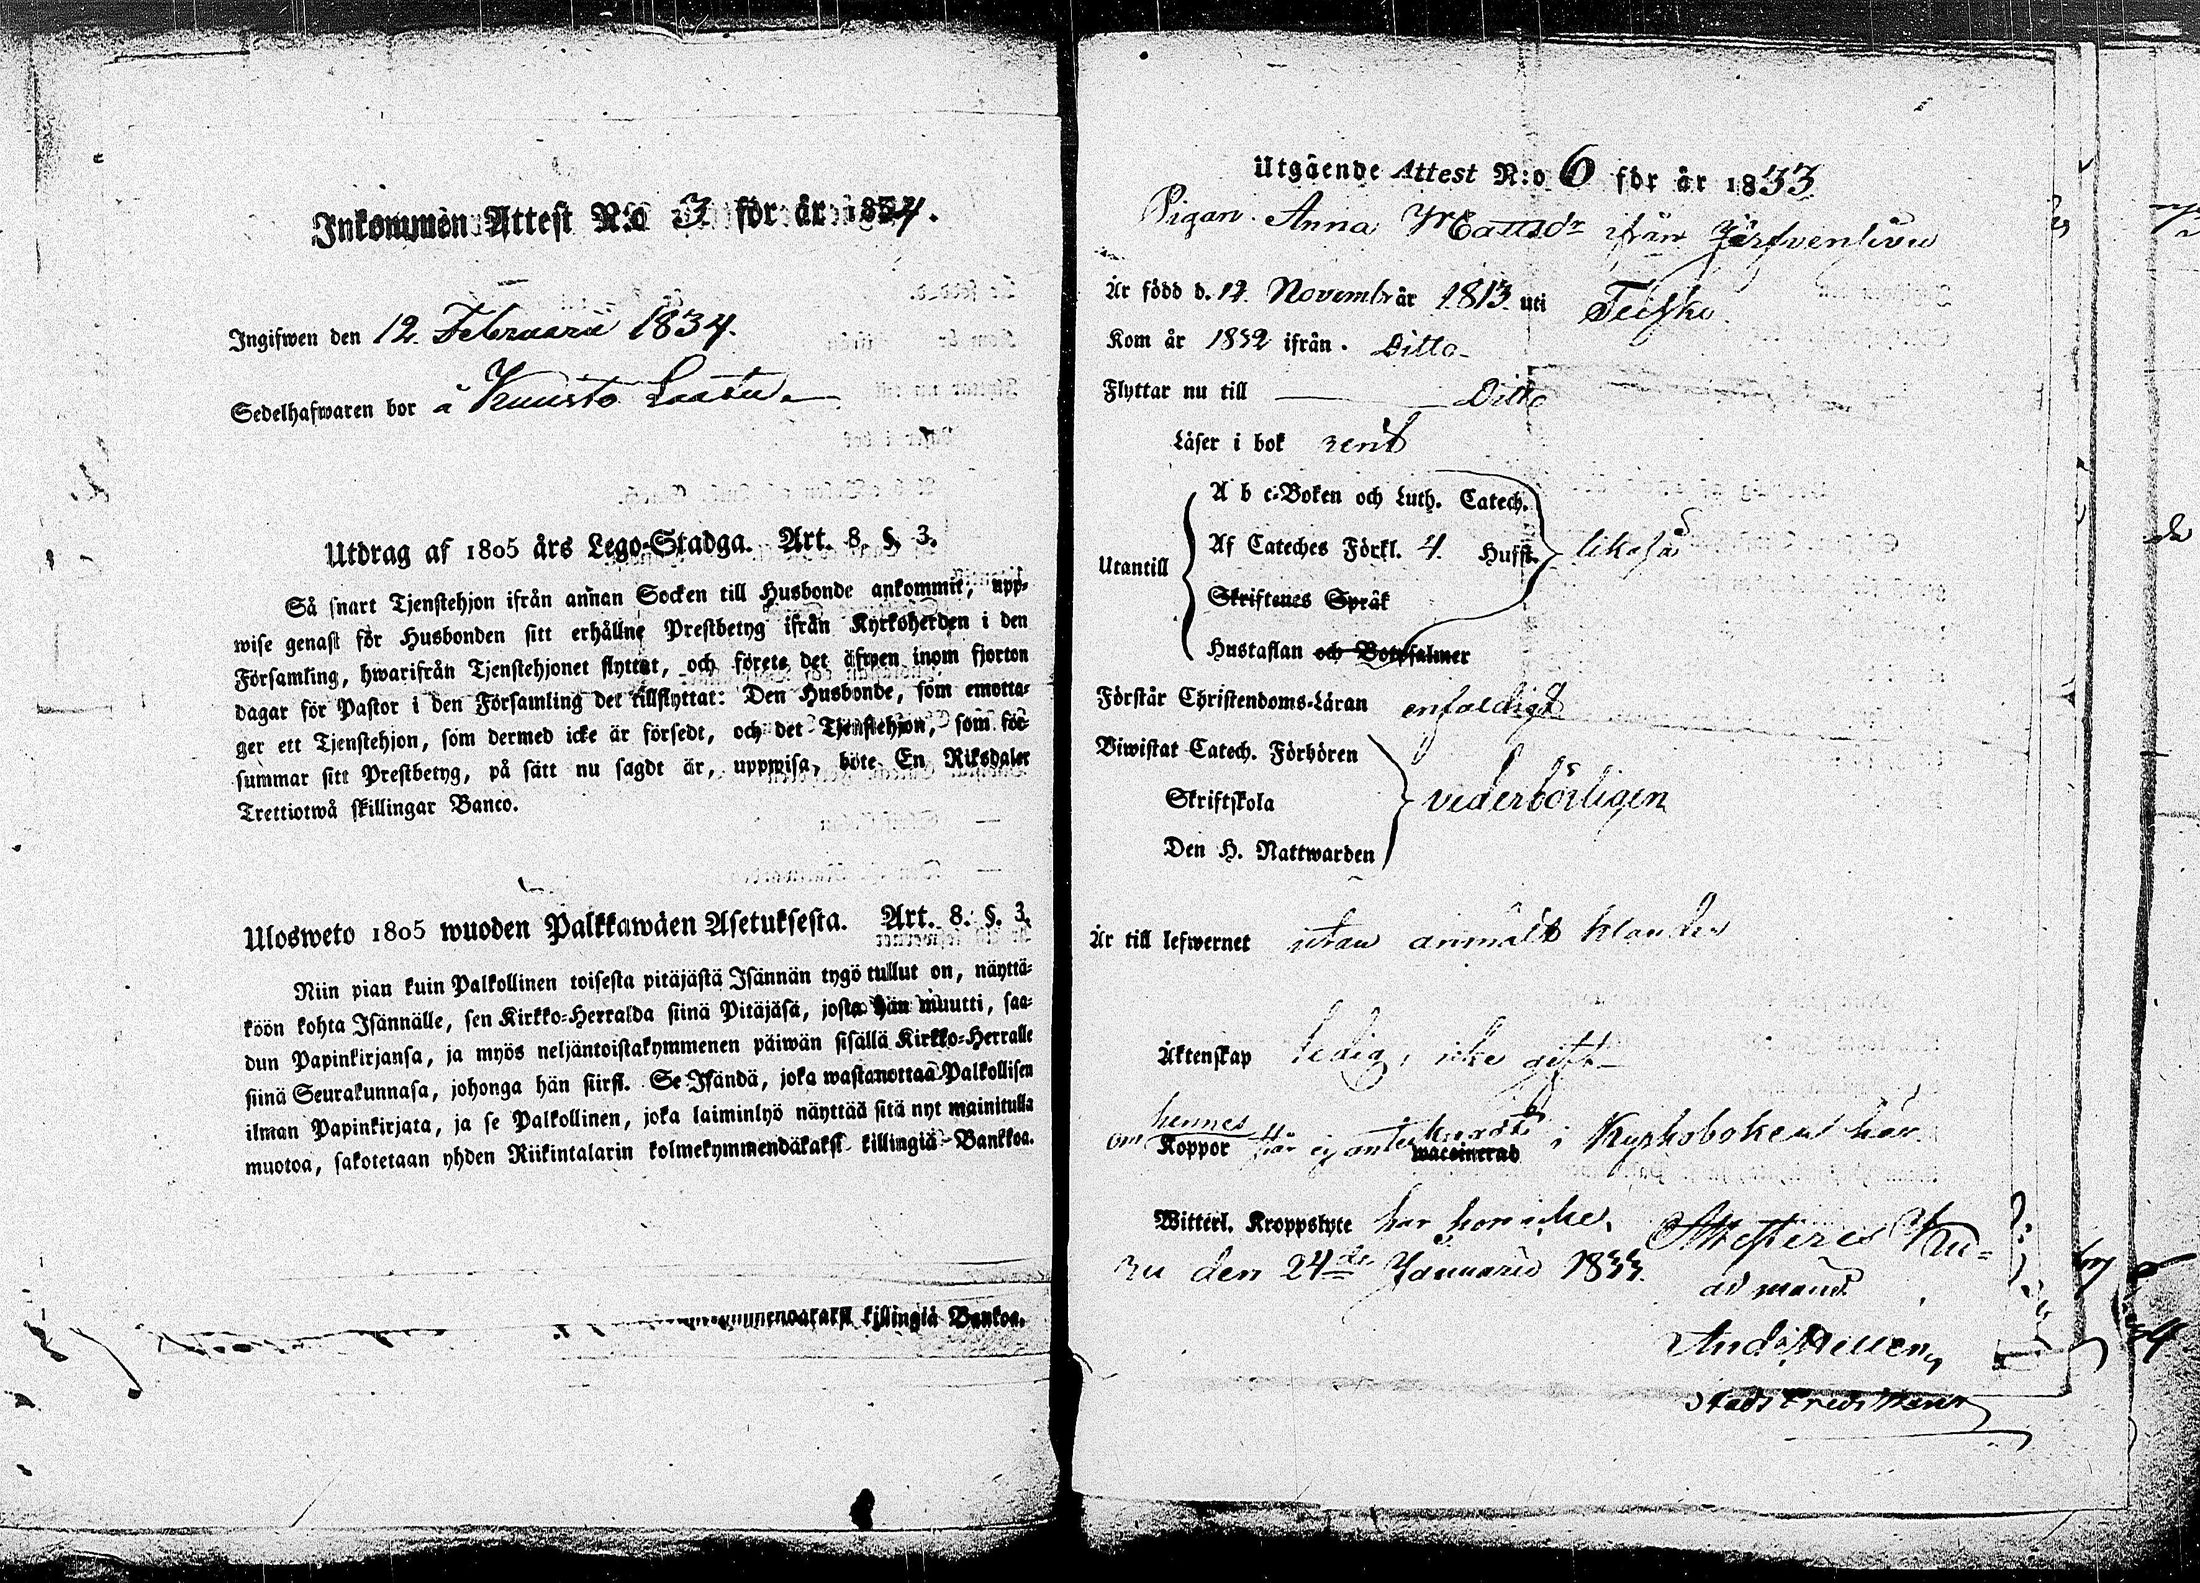 Inkommen Attest N:o 3 för år 1834.
Ingifwen den 12 Februarii 1834.
Sedelhafwaren bor å Kunisto Laasu
Utdrag af 1805 års Lego-Stadga. Art. 8. §. 3.
Så snart Tjenstehjon ifrån annan Socken till Husbonde ankommit, upp-
wise genast för Husbonden sitt erhållne Prestbetyg ifrån Kyrkoherden i den
Församling, hwarifrån Tjenstehjonet flyttat, och förete det äfwen inom fjorton
dagar för Pastor i den Församling det tillflyttat: Den Husbonde, som emotta-
ger ett Tjenstehjon, som dermed icke är försedt, och det Tjenstehjon, som för-
summar sitt Prestbetyg, på sätt nu sagdt är, uppwisa, böte En Riksdaler
Trettiotwå skillingar Banco.
Ulosweto 1805 wuoden Palkkawäen Asetuksesta. Art. 8. §. 3.
Niin pian kuin Palkollinen toisesta pitäjästä Isännän tygö tullut on, näyttä-
köön kohta Isännälle, sen Kirkko-Herralda siinä Pitäjäsä, josta hän muutti, saa-
dun Papinkirjansa, ja myös neljäntoistakymmenen päiwän sisällä Kirkko-Herralle
siinä Seurakunnasa, johonga hän siirsi. Se Isändä, joka wastanottaa Palkollisen
ilman Papinkirjata, ja se Palkollinen, joka laiminlyö näyttää sitä nyt mainitulla
muotoa, sakotetaan yhden Riikintalarin kolmekymmendäkaksi killingiä Bankkoa.
killingiä Bankoa.
Utgående Attest N:o 6 för år 1833
Pigan Anna Mattsdr ifrån Järfvensivu
Är född d. 12 Novembr år 1813 uti Teisko
Kom år 1832 ifrån Ditto
Flyttar nu till Ditto
Läser i bok rent
A b c-Boken och Luth. Catech.
Utantill Af Cateches Förkl. 4. Hufst. likaså
Skriftenes Språk
Hustaflan och Botpsalmer
Förstår Christendoms-Läran enfaldigt
Biwistat Catech. Förhören
Skriftskola vederbörligen
Den H. Nattwarden
Är till lefwernet utan anmält klander
Äktenskap ledig, icke gift
hennes
om Koppor står ej antecknadt i Kyrkoboken här
waccinerad
Witterl. Kroppslyte har hon icke. Attesteras
den 24de Januarii 1833.
And Hellén